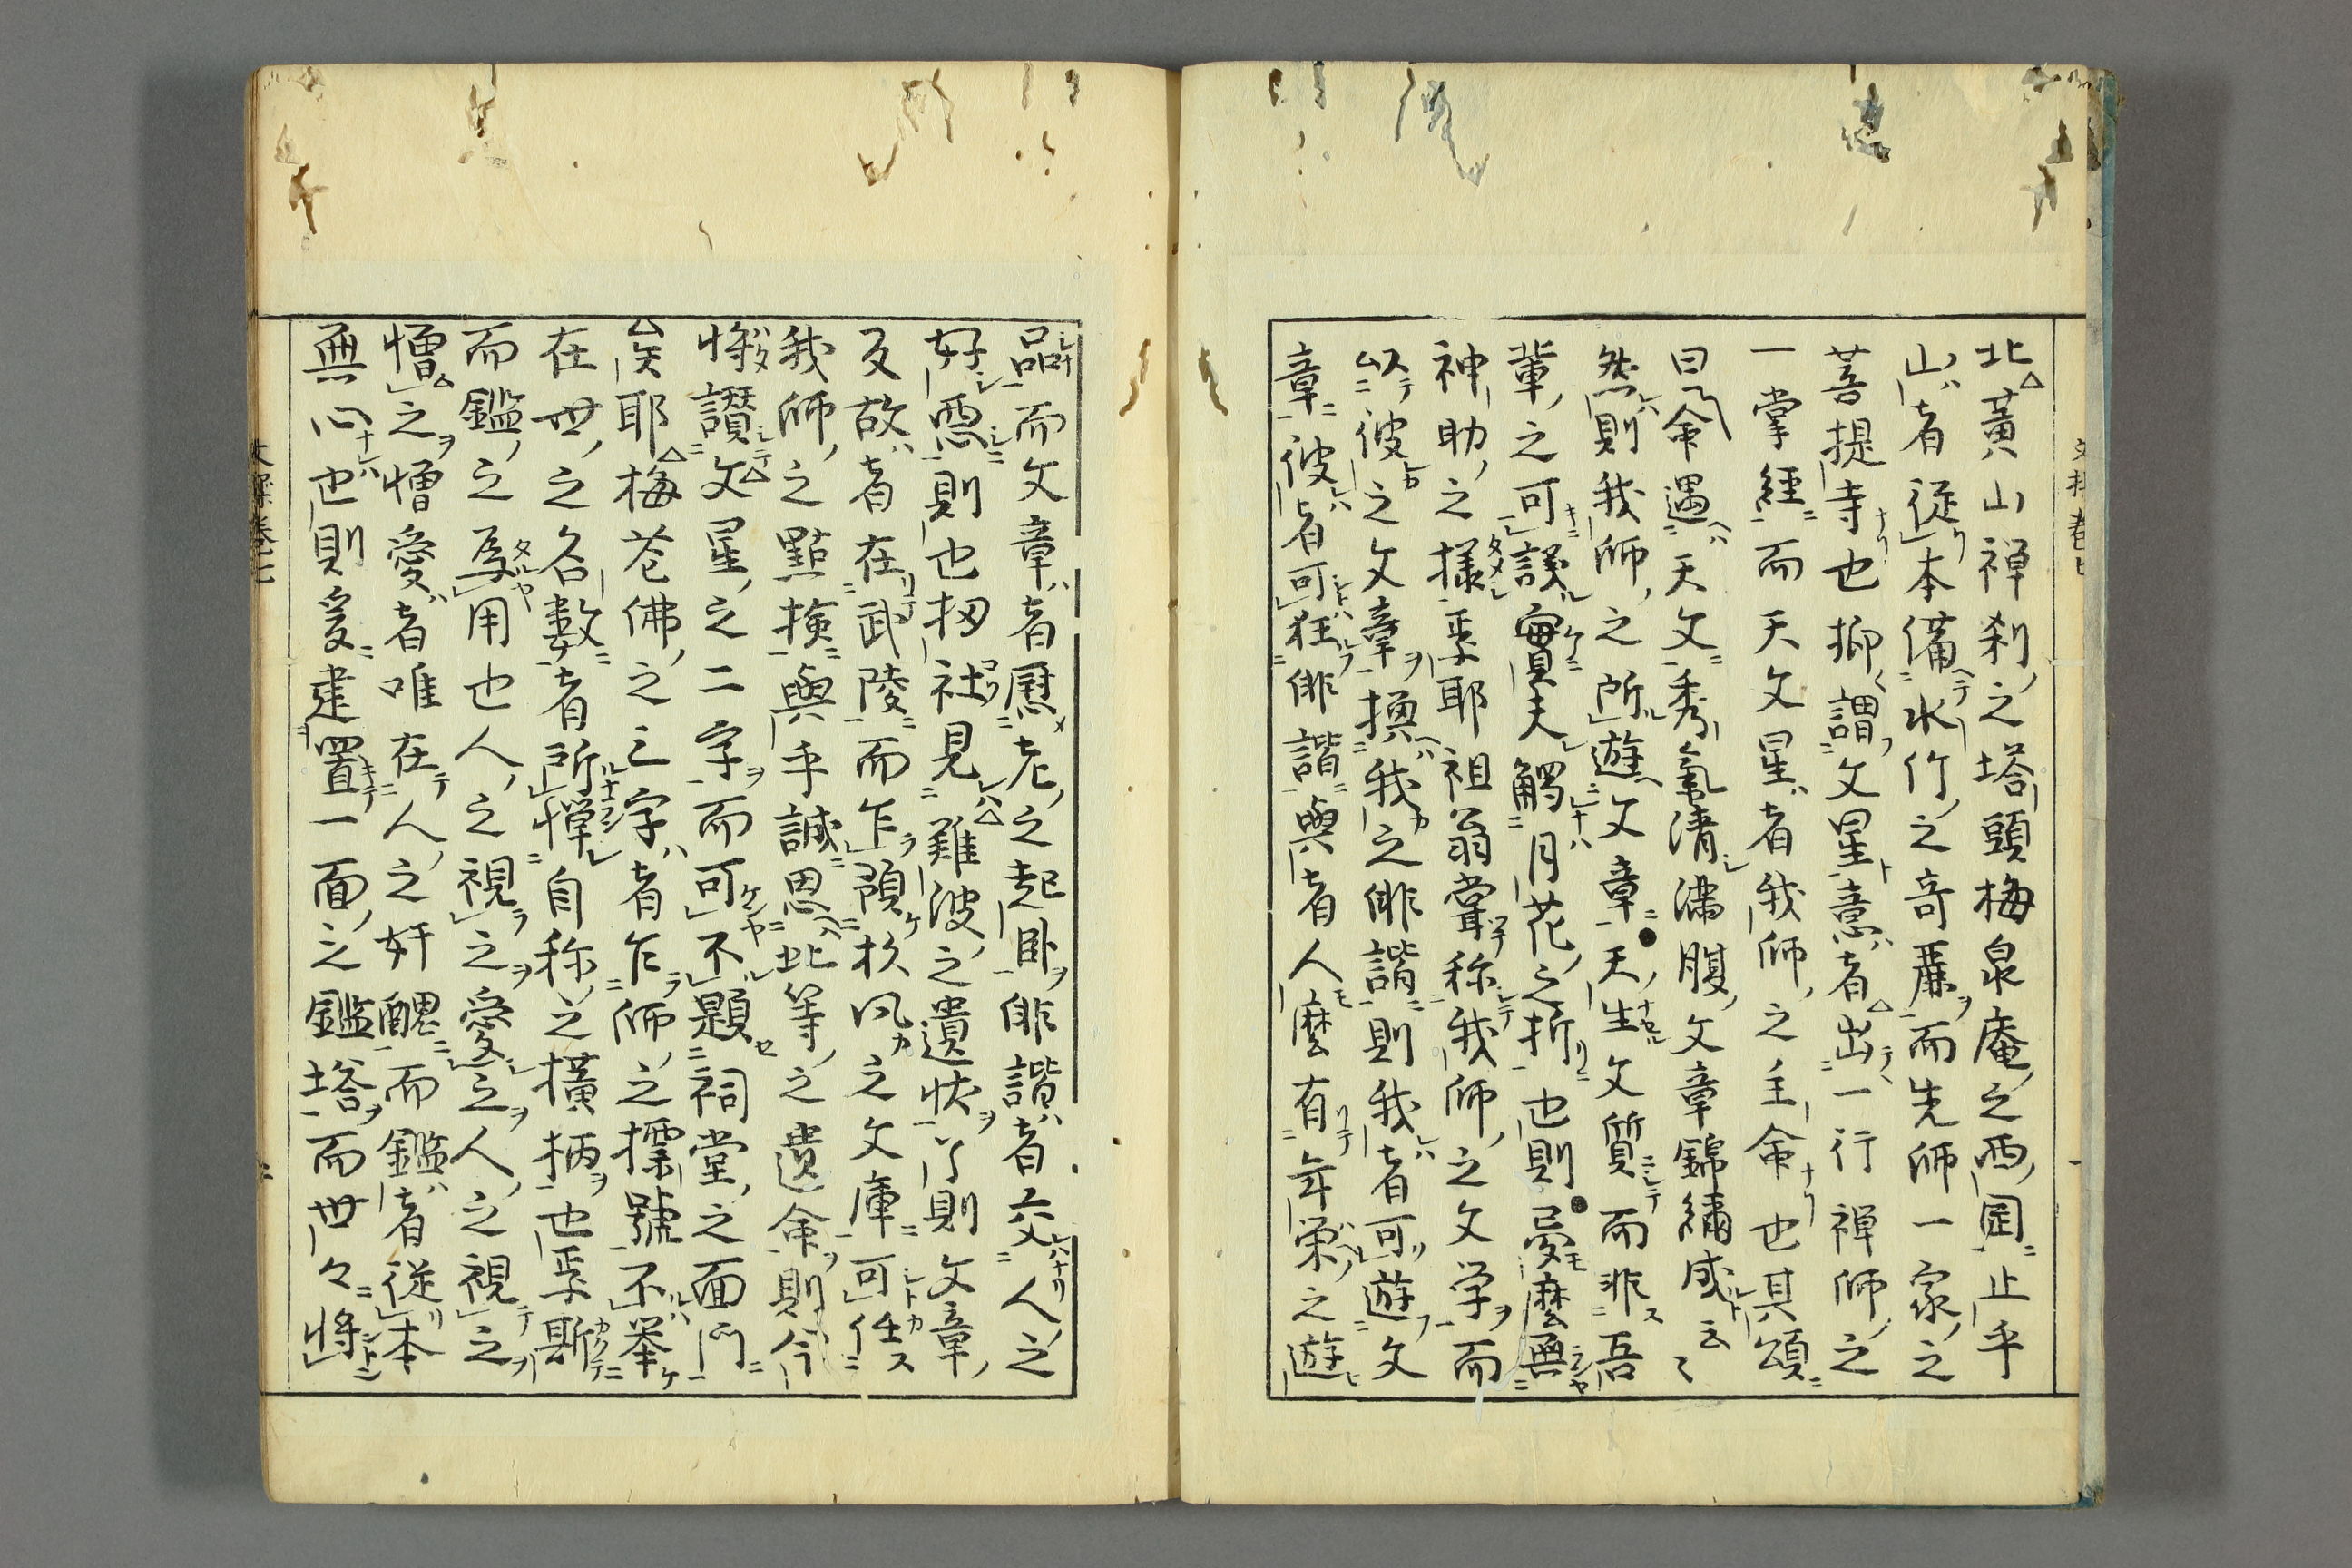 北黃山禅刹之塔頭梅泉庵之西園止乎
山者從本備水竹之奇麗而先師一家之
菩提寺也抑謂文星意者出一行禅師之
一掌經而天文星者我師之主命也其頌
曰命遇天文秀氣清滿腹文章錦繡成云々
然則我師之所遊文章天生文質而非吾
輩之可議實夫觸月花之折也則憂麼無
神助之様乎耶祖翁嘗称我師之文学而
以彼之文章換我之俳諧則我者可遊文
章彼者可狂俳諧與者人麼有年栄之遊
品而文章者慰老之起卧俳諧者交人之
好惡則也扨社見難波之遺状了則文章
反故者在武陵而乍預杉風之文庫可任
我師之點撿與乎誠思此等之遺命則今
慚讃文星之二字而可不題祠堂之面門
矣耶梅花佛之三字者乍師之標號不挙
在世之名数者所憚自称之橫柄也乎斯
而鑑之為用也人之視之愛之人之視之
憎之憎愛者唯在人之奸醜而鑑者從本
無心也則爰建置一面之鑑塔而世々將